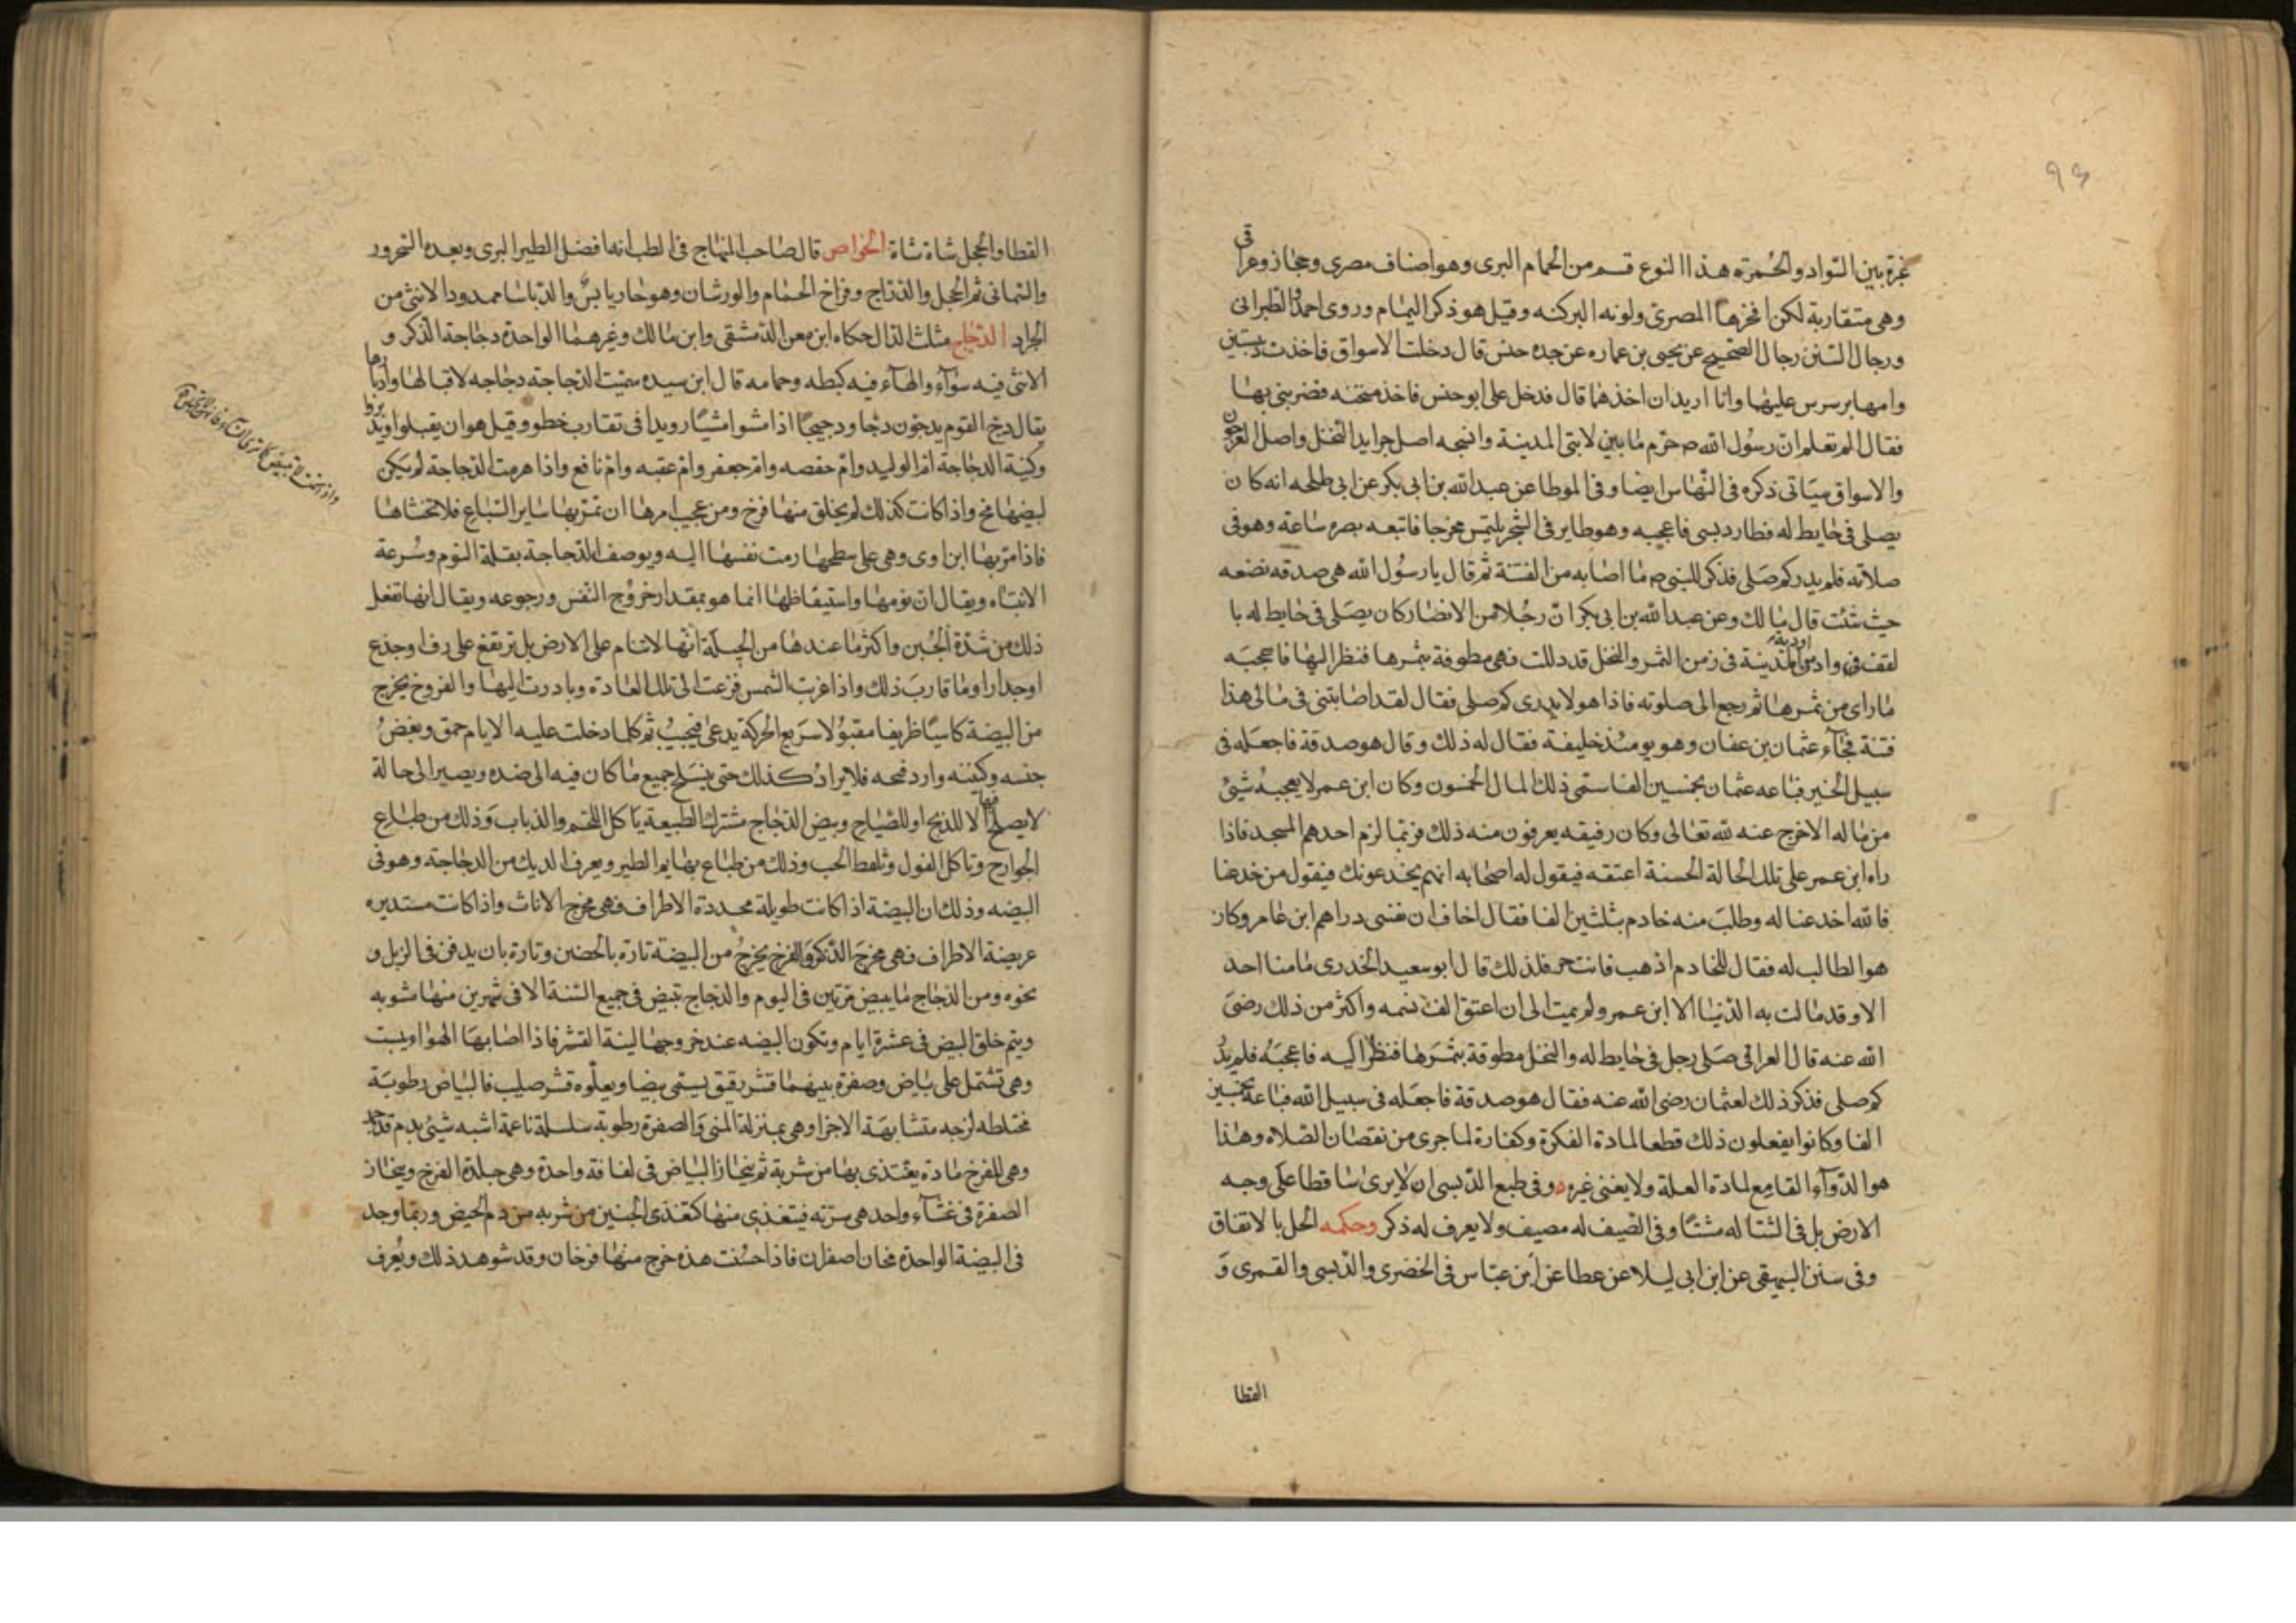 ٩٣
غبرة بين السواد والحُمرة هذا النوع قسم من الحمام البرى وهو اصناف مصرى وحجازى وعراقى
وهى متقاربة لكن افخرها المصرى ولونه الدكنه وقيل هو ذكر اليمام وروى احمد والطبرانى
ورجال السنن رجال الصحيح عن يحيى بن عماره عن جده حنش قال دخلت الاسواق فاخذت دبستين
وامها ترشرش عليها وانا اريد ان اخذهما قال فدخل على ابو حنش فاخذ متخنه فضربنى بها
فقال الم تعلم ان رسول الله صم حرم ما بين لابتى المدينة والمتيخه اصل جرايد النخل واصل العرجون
والاسواق سيأتى ذكره فى النهاس ايضا وفى الموطا عن عبد الله بن ابى بكر عن ابى طلحه انه كان
يصلى فى حايط له فطار دبسى فاعجبه وهو طاير فى الشجر يلتمس مخرجا فاتبعه بصره ساعة وهو فى
صلاته فلم يدر كم صلى فذكر للنبى صم ما اصابه من الفتنة ثم قال يا رسول الله هى صدقه فضعه
حيث شئت قال مالك وعن عبد الله بن ابى بكر ان رجُلا من الانصار كان يصلى فى حايط له با
لقف فى واد من اودية المدينة فى زمن الثمر والنخل قد دللت فهى مطوفة بثمرها فنظر اليها فاعجبه
ما راى من ثمرها ثم رجع الى صلوته فاذا هو لا يدرى كم صلى فقال لقد اصابتنى فى مالى هذا
فتنة فجآء عثمان بن عفان وهو يومئذ خليفة فقال له ذلك وقال هو صدقة فاجعله فى
سبيل الخير فباعه عثمان بخمسين الفا سمى ذلك المال الخمسون وكان ابن عمر لا يعجبه شيئ
من ماله الا خرج عنه لله تعالى وكان رفيقه يعرفون منه ذلك فربما لزم احدهم المسجد فاذا
راه ابن عمر على تلك الحالة الحسنة اعتقه فيقول له اصحابه انهم يخدعونك فيقول من خدعنا
فالله اخدعنا له وطلب منه خادم بثلثين الفا فقال اخاف ان تفتنى دراهم ابن عامر وكان
هو الطالب له فقال للخادم اذهب فانت حر فلذلك قال ابو سعيد الخدرى ما منا احد
الا وقد مالت به الدنيا الا ابن عمر ولم يمت الى ان اعتق الف نسمه واكثر من ذلك رضى
الله عنه قال العراقى صلى رجل فى حايط له والنخل مطوقة بثمرها فنظر اليه فاعجبه فلم يدر
كم صلى فذكر ذلك لعثمان رضى الله عنه فقال هو صدقة فاجعله فى سبيل الله فباعه بخمسين
الفا وكانوا يفعلون ذلك قطعا لمادة الفكرة وكفارة لما جرى من نقصان الصلاه وهذا
هو الدوآء القامع لمادة العلة ولا يغنى غيره وفى طبع الدبسى ان لا يرى ساقطا على وجه
الارض بل فى الشتا له مشتًا وفى الصيف له مصيف ولا يعرف له ذكر وحكمه الحل بالاتفاق
وفى سنن البيهقى عن ابن ابى ليلا عن عطا عن ابن عباس فى الخضرى والدبسى والقمرى و
القطا
القطا والحجل شاة شاة الخواص قال صاحب المنهاج فى الطب انه افضل الطير البرى وبعده الشحرور
والسمانى ثم الحجل والدراج وفراخ الحمام والورشان وهو حار يابس والدباسا ممدودا الانثى من
الجراد الدجاج مثلث الدال حكاه ابن معن الدمشقى وابن مالك وغيرهما الواحدة دجاجة الذكر و
الانثى فيه سوآء والهآء فيه كبطه وحمامه قال ابن سيده سميت الدجاجة دجاجه لاقبالها وادبارها
يقال دج القوم يدجون دجا ودجيجًا اذا مشوا مشيًا رويدا فى تقارب خطو وقيل هو ان يقبلوا ويدبروا
وكنية الدجاجة ام الوليد وام حفصه وام جعفر وام عقبه وام نافع واذا هرمت الدجاجة لم يكن
لبيضها مخ واذا كانت كذلك لم يخلق منها فرخ ومن عجيب امرها ان تمر بها ساير السباع فلا تخشاها
فاذا مر بها ابن اوى وهى على سطحها رمت نفسها اليه ويوصف الدجاجة بقلة النوم وسُرعة
الانتباه ويقال ان نومها واستيقاظها انما هو بمقدار خروج النفس ورجوعه ويقال انها تفعل
ذلك من شدة الجُبن واكثر ما عندها من الحيلة انها لا تنام على الارض بل ترتفع على رف او جذع
او جدار او ما قارب ذلك واذا غربت الشمس فزعت الى تلك العادة وبادرت اليها والفروخ يخرج
من البيضة كاسيًا ظريفا مقبولا سريع الحركة يدعى فيجيب ثم كلما دخلت عليه الايام حمق ونغض
جنسه وكيسه وارد قبحه فلا يزال كذلك حتى ينسلخ جميع ما كان فيه الى ضده ويصير الى حالة
لا يصلح فيها الا للذبح او للصياح وبيض الدجاج مشترك الطبيعة ياكل اللحم والذباب وذلك من طباع
الجوارح وياكل الفول وتلقط الحب وذلك من طباع بهايم الطير ويعرف الديك من الدجاجة وهو فى
البيضه وذلك ان البيضة اذا كانت طويلة محددة الاطراف فهى مخرج الاناث واذا كانت مستديره
عريضة الاطراف فهى مخرج الذكر والفرخ يخرج من البيضة تارة بالحضن وتارة بان يدفن فى الزبل و
نحوه ومن الدجاج ما يبيض مرتين فى اليوم والدجاج تبيض فى جميع السنة الا فى شهرين منها شتويه
ويتم خلق البيض فى عشرة ايام وتكون البيضه عند خروجها لينة القشر فاذا اصابها الهوا يبست
وهى تشتمل على بياض وصفرة بينهما قشر رقيق يسمى بيضا ويعلوه قشر صليب فالبياض رطوبة
مختلطه لزجه متشابهة الاجزا وهى بمنزلة المنى والصفرة رطوبة سلسلة ناعمة اشبه شيئ بدم قد جمد
وهى للفرخ مادة يغتذى بها من شربة ثم ينحاز البياض فى لفافة واحدة وهى جلدة الفرخ وينحاز
الصفرة فى غشآء واحد هى سرته فيتغذى منها كتغذى الجنين من شربه من دم الحيض وربما وجد
فى البيضة الواحدة مخان اصفران فاذا احضنت هذه خرج منها فرخان وقد شوهد ذلك ويعرف